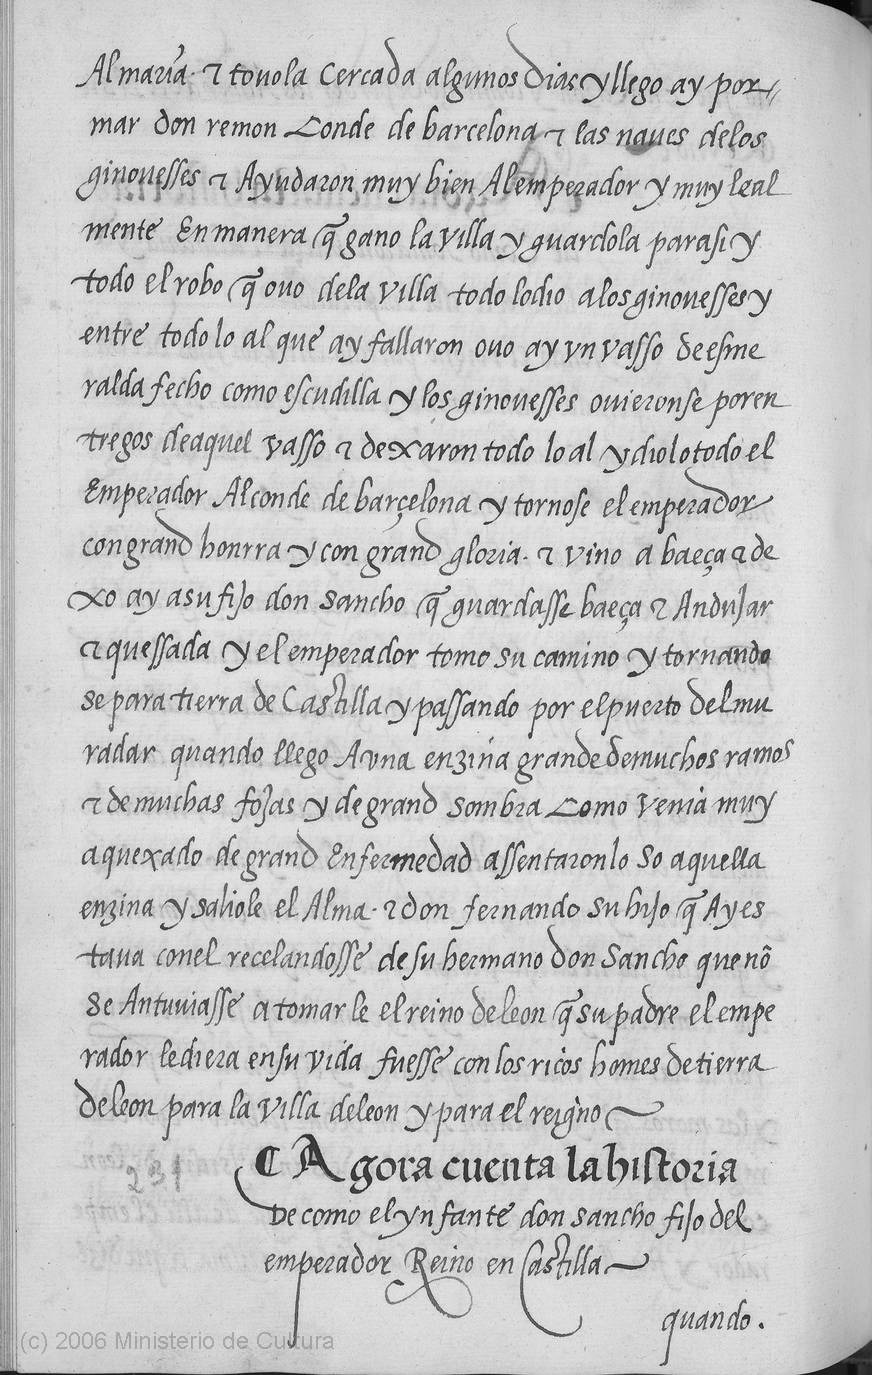 Almaria · ⁊ touola Cercada algunos dias y llego ay por
mar don remon Conde de barcelona ⁊ las naues delos
ginouesses ⁊ Ayudaron muy bien Alemperador y muy leal
mente En manera q̃ gano la villa y guardola parasi y
todo el robo q̃ ouo dela villa todo lodio alos ginouesses y
entre todo lo al que ay fallaron ouo ay vn vasso de esme
ralda fecho como escudilla y los ginouesses ouieronse por en
tregos de aquel vasso ⁊ dexaron todo lo al y diolo todo el
Emperador Al conde de barçelona y tornose el emperador
con grand honrra y con grand gloria · ⁊ vino a baeça ⁊ de
xo ay a su fijo don sancho q̃ guardasse baeça ⁊ Andujar
⁊ quessada y el emperador tomo su camino y tornando
se para tierra de Castilla y passando por el puerto del mu
radar quando llego A vna enzina grande de muchos ramos
⁊ de muchas fojas y de grand sombra Como venia muy
aquexado de grand Enfermedad assentaronlo so aquella
enzina y saliole el Alma · ⁊ don fernando su hijo q̃ Ay es
taua con el recelandosse de su hermano don Sancho que nõ
se Antuuiasse a tomar le el reino de leon q̃ su padre el empe
rador le diera en su vida fuesse con los ricos homes de tierra
de leon para la villa de leon y para el reigno
231
¶ Agora cuenta la historia
De como el ynfante don sancho fijo del
emperador Reino en Castilla
quando .
(c) 2006 Ministerio de Cultura